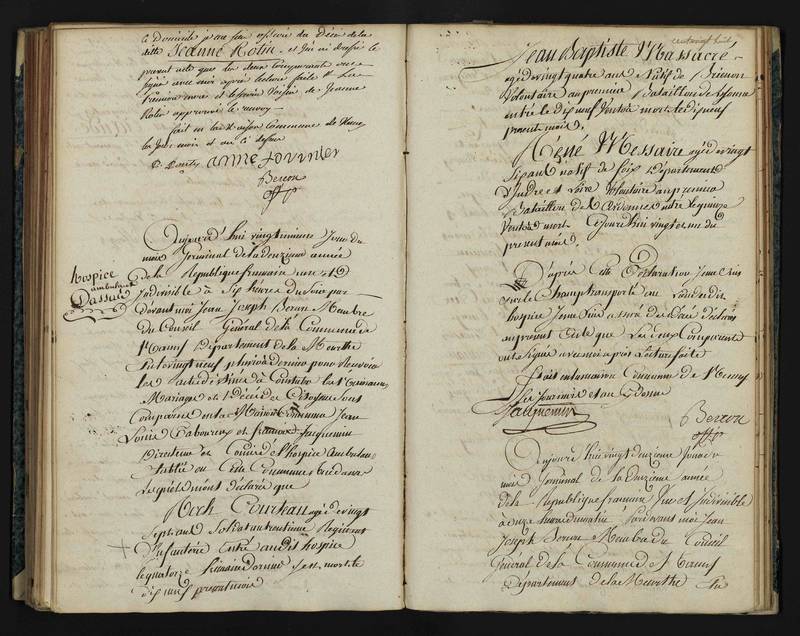 ce Domicile je me suis assuré du Décès de la
ditte Jeanne Rolin et j'ai dressé le
present acte que les deux Comparants ont
signé avec moi après lecture faite
Rolin approuvé le renvoy
fait en la Maison Commune de Nancy
les Jour mois et an ci dessus
anne fournier
Beron
off p
hospice
ambulant
Dassaut
Aujourd'hui vingtunieme Jour du
mois Germinal de la deuzieme année
de la Republique francaise une et
Indivisible à Six heures du Soir par
devant moi Jean Joseph Beron Membre
du Conseil Général de la Commune de
Nancy Département de la Meurthe
Elu le vingt neuf pluviose dernier pour Recevoir
les Actes destinés à Constater les Naissances
Mariages et Décès des Citoyens sont
Comparus en la Maison Commune Jean
Louis Taboureux et francois Jacquemin
Directeur et Commis de l'hospice Ambulant
établie en Cette Commune
Lesquels m'ont déclaré que
Roch Courtau agé de vingt
Sept ans Soldat au trentieme Regiment
D'infanterie Entré audit hospice
le quatorze Germinal dernier est mort le
dix neuf present mois
Jean Baptiste Massacré
agé de vingt quatre ans Natif de Brienon
Volontaire au premier Bataillon de l'yonne
entré le dix neuf Ventose mort le dix neuf
present mois.
René Messaire agé de vingt
Six ans natif de foix Département
d'Indre et Loire Volontaire au premier
Bataillon des Ardennes entré le quinze
Ventose mort Cejourd'hui vingt et un du
present mois.
D'après Cette Déclaration Je me Suis
sur le Champ transporté au
hospice Je me Suis assuré desd. Décès déclarés
au present Acte que Les deux Comparants
ont Signé avec moi après Lecture faite
Fait en la maison Commune de Nancy
Les Jour mois et an Cy Dessus
Jacquemin
Beron
off p
Aujourd'hui vingt deuxieme Jour du
mois Germinal de la Deuxieme année
de la Republique francaise Une et Indivisible
à onze heures du matin Pardevant moi Jean
Joseph Beron Membre du Conseil
Général de la Commune de Nancy
Département de la Meurthe Elu